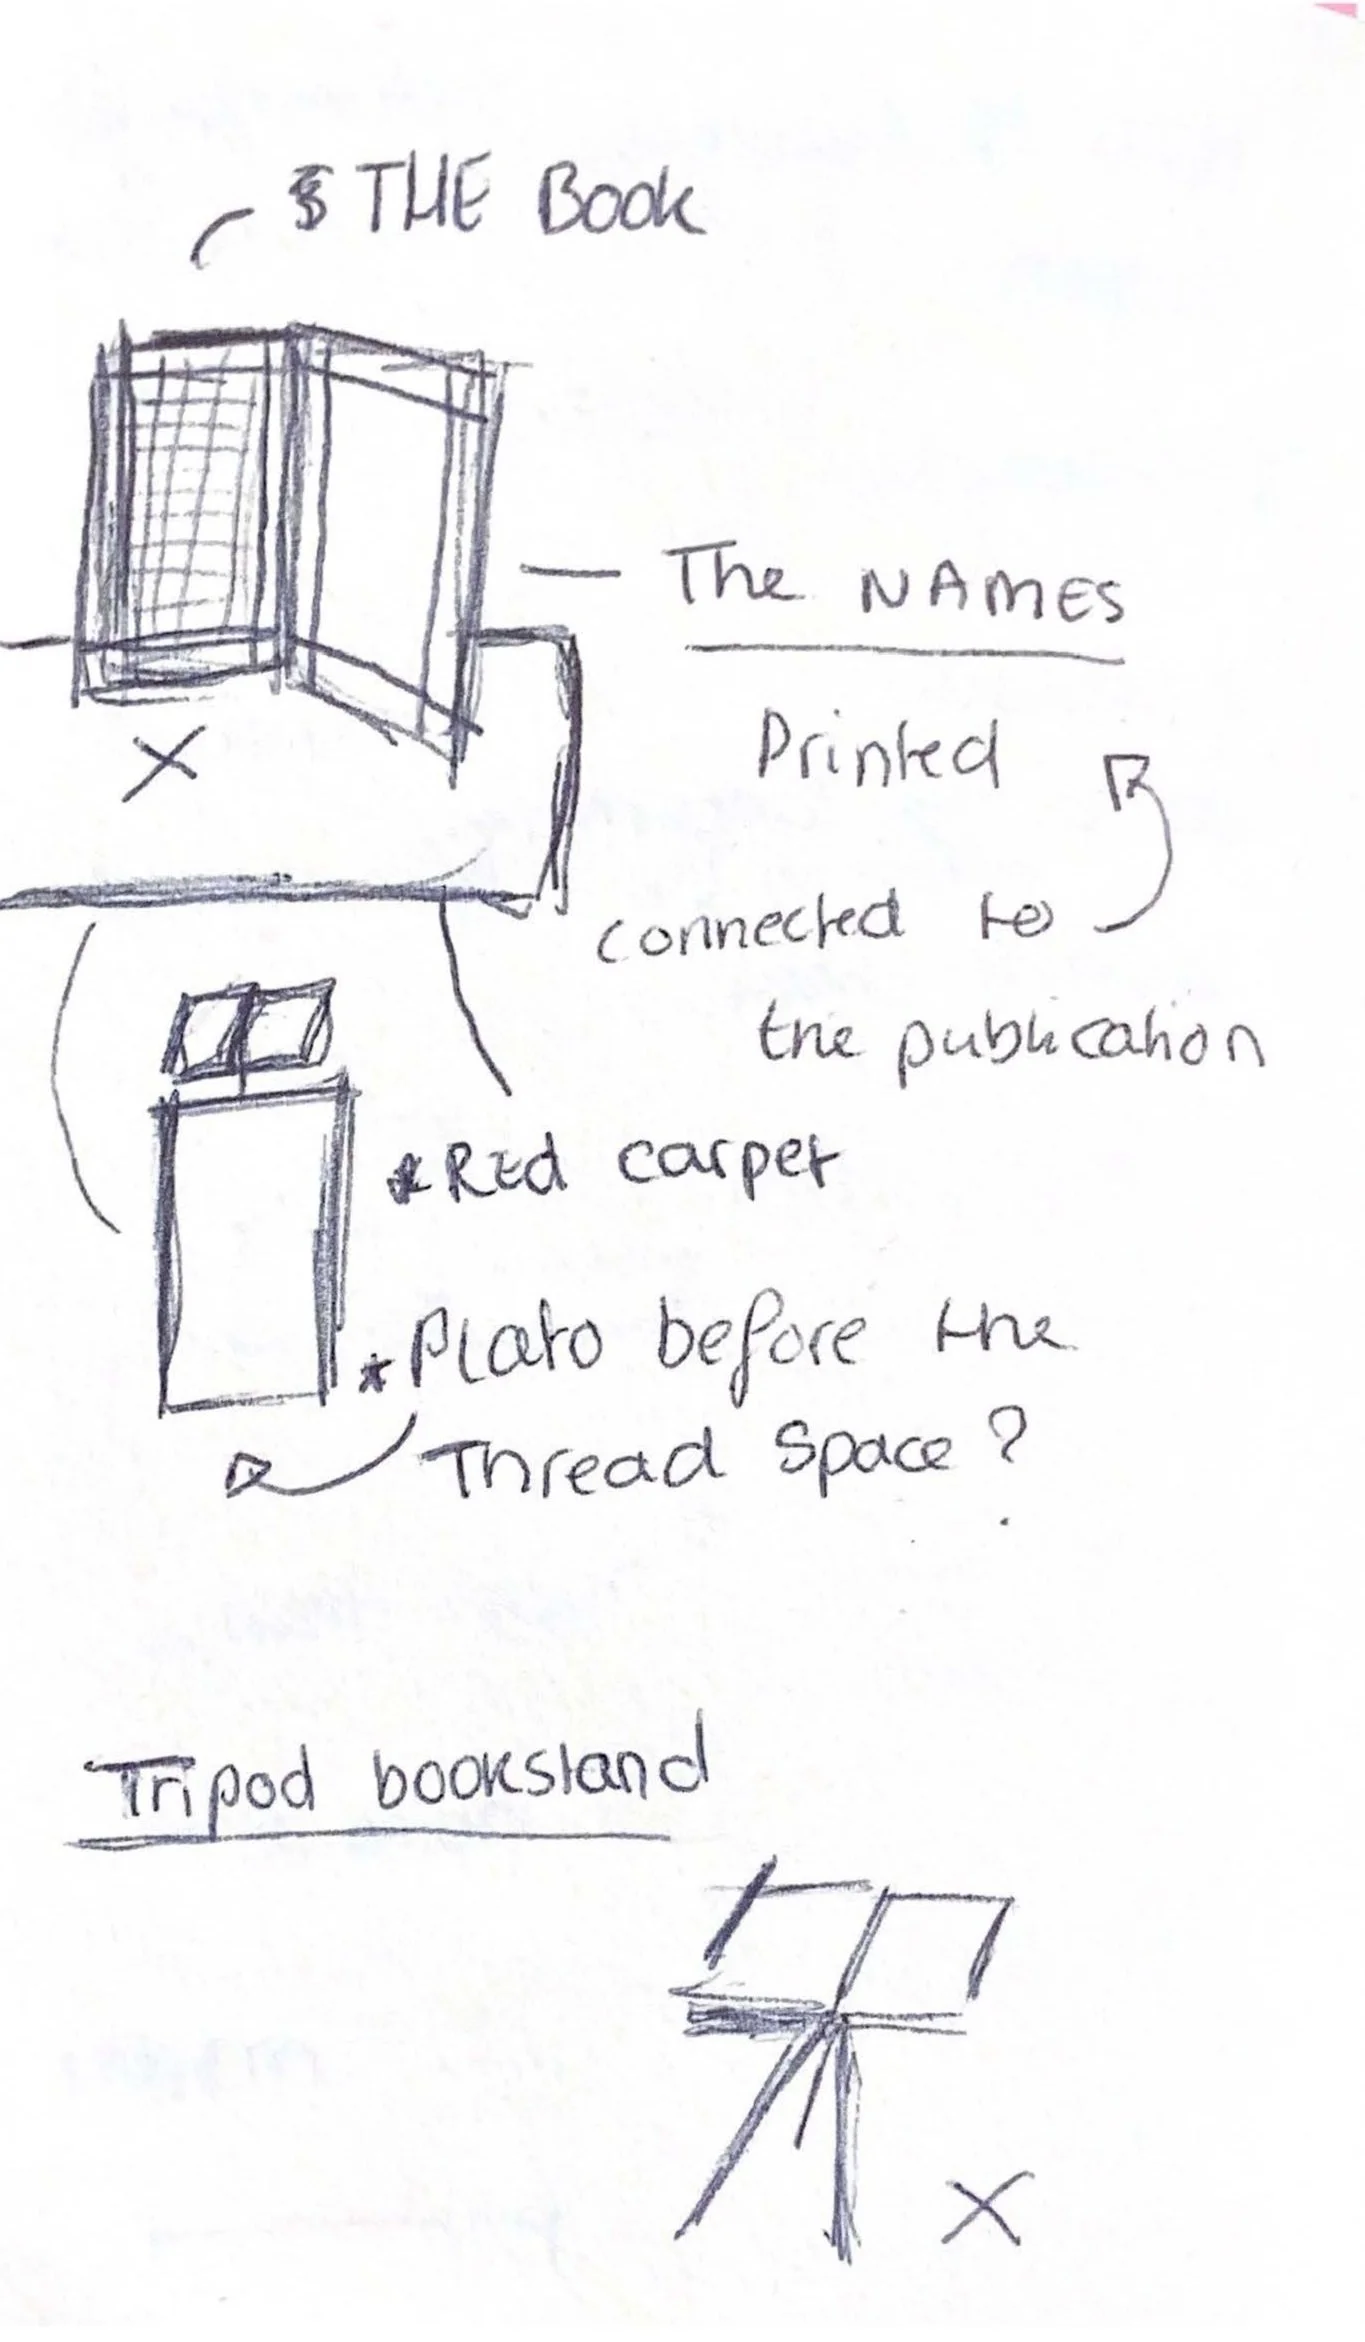 THE Book
The NAMES
Printed
connected to
the publication
* Red carpet
* Plato before the
Thread Space?
Tripod bookstand